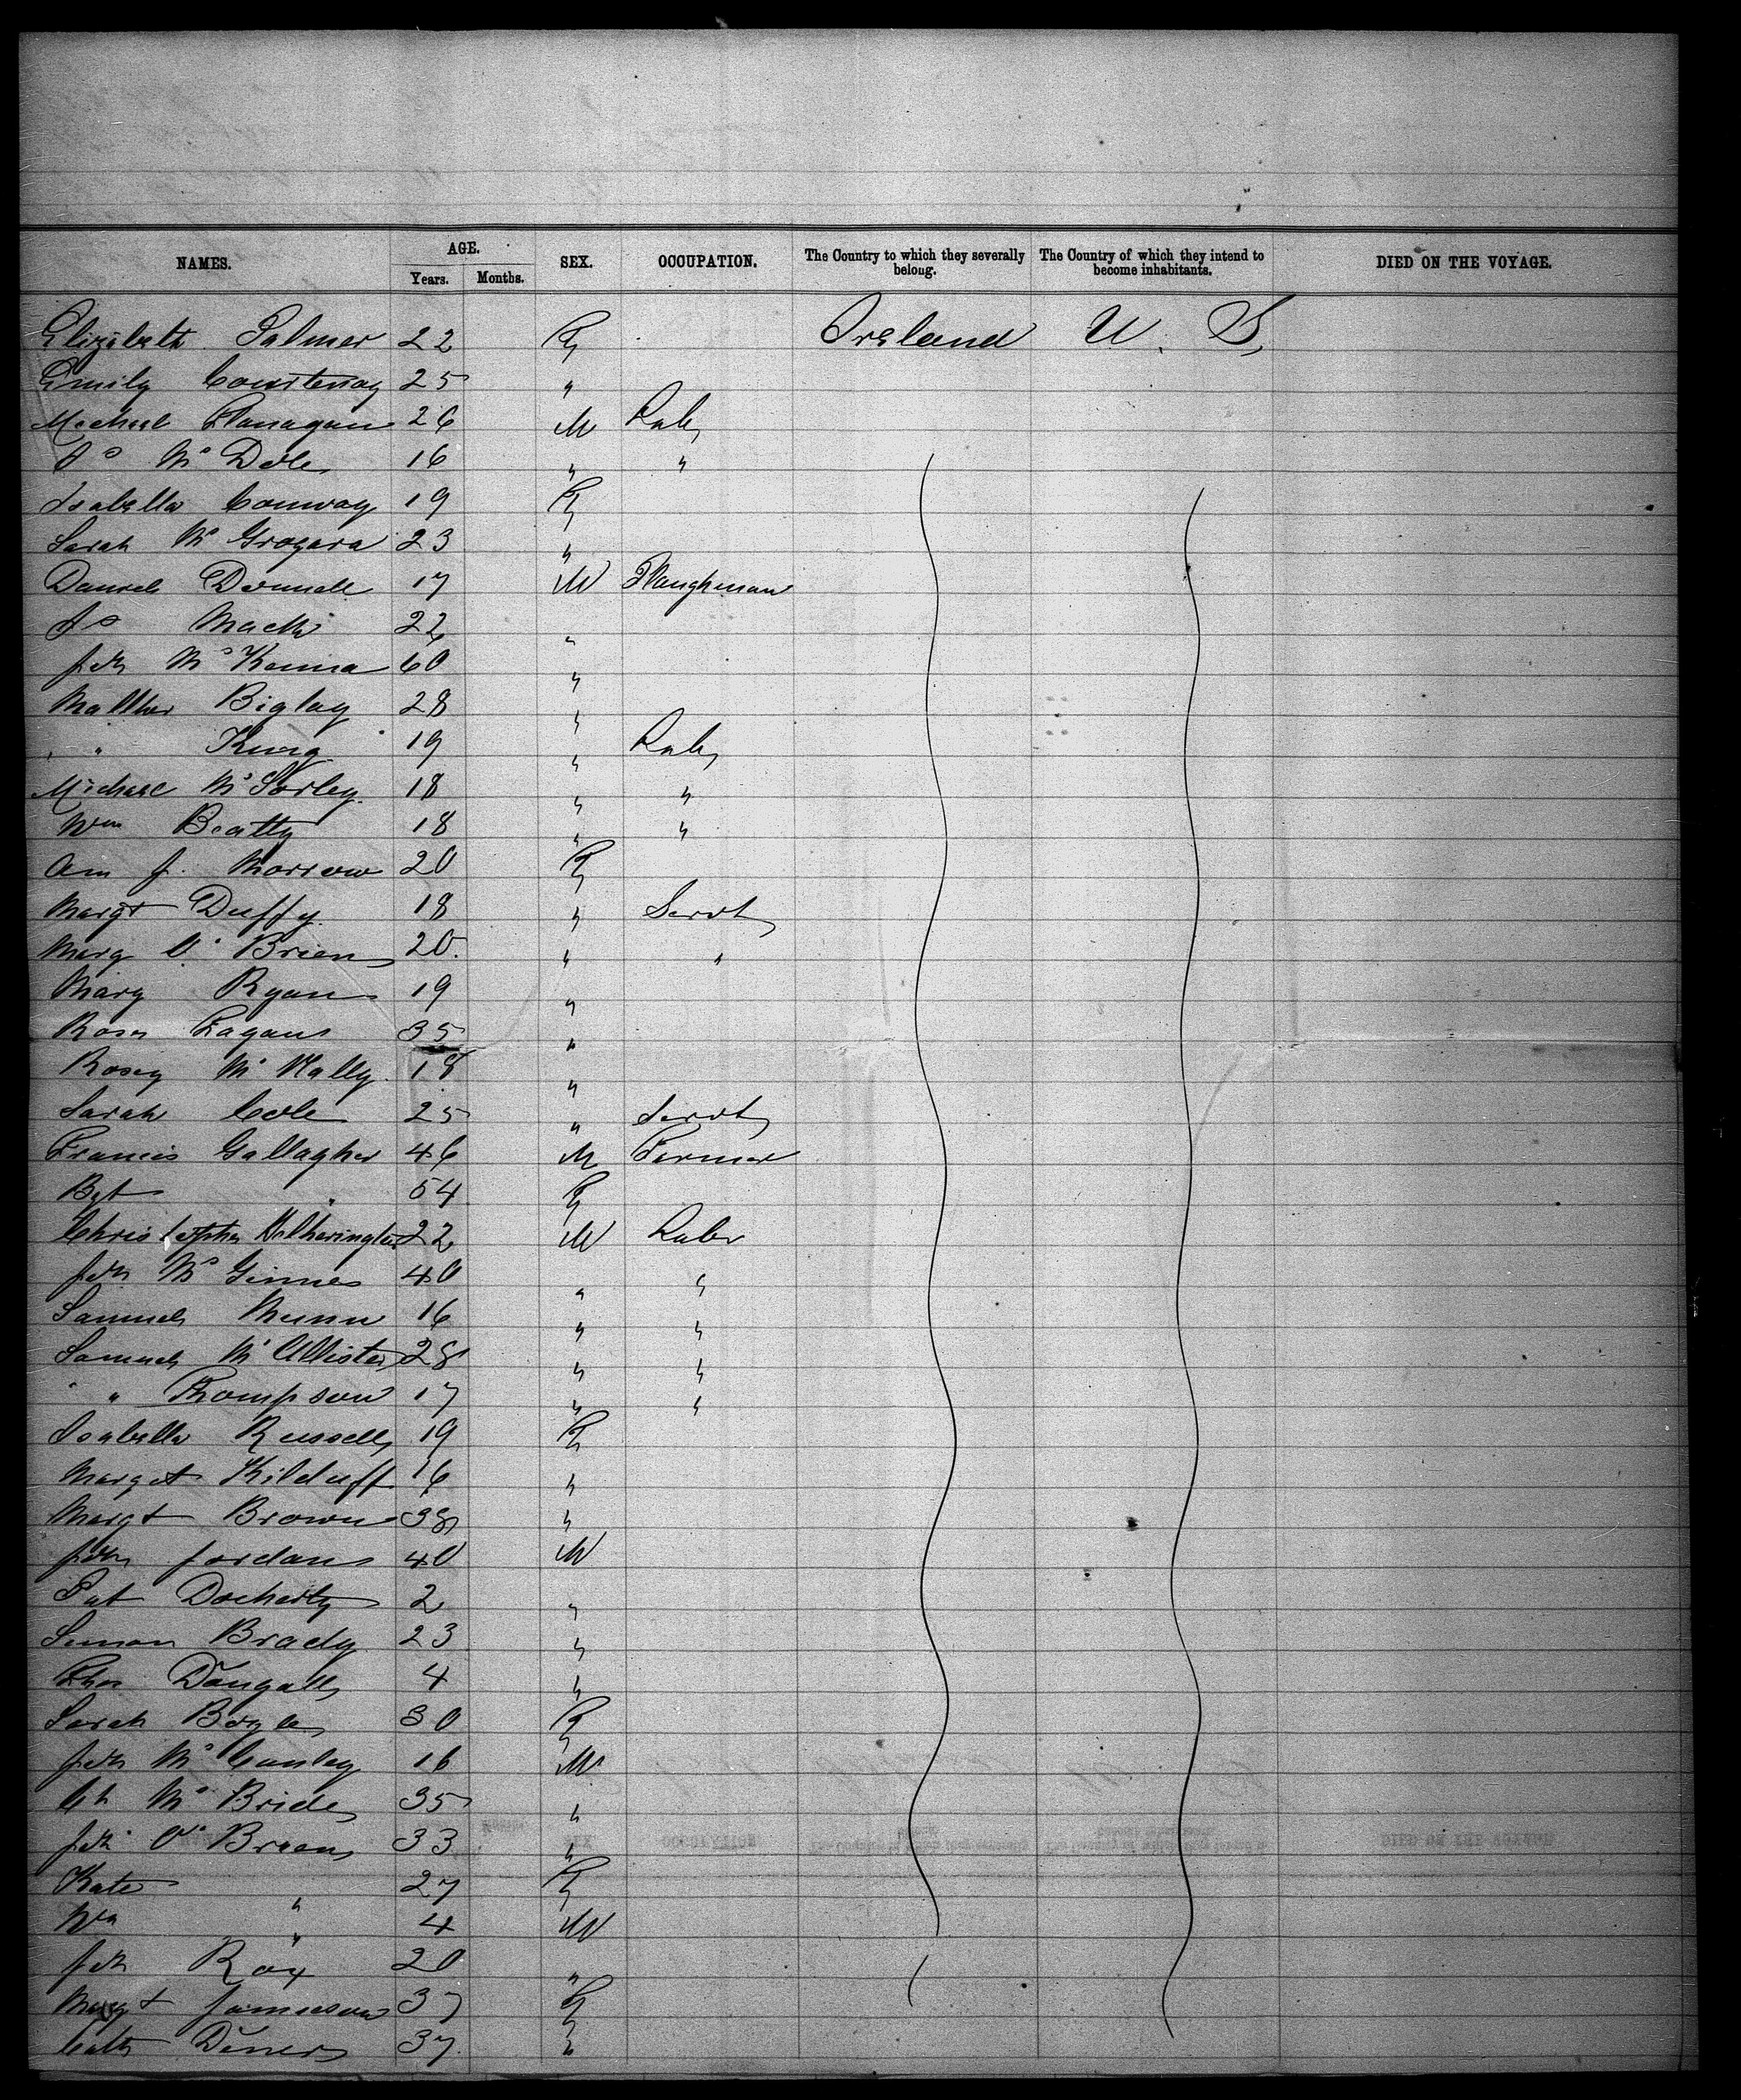 NAMES. AGE. Years. Months. SEX. OCCUPATION. The Country to which they severally belong. The Country of which they intend to become inhabitants. DIED ON THE VOYAGE.
Elizabeth Palmer 22 F Ireland U. S.
Emily Courtenay 25 "
Michael Flanagan 26 M Labr
Do McDole 16 " "
Isabella Conway 19 F
Sarah McGrogara 23 "
Daniel Donnell 17 M Ploughman
Do Mack 22 "
Jno McKenna 60 "
Matthew Biglay 28 "
" King 19 " Labr
Michael McSorley 18 " "
Wm Beatty 18 " "
Ann J. Morrow 20 F
Margt Duffy 18 " Servt
Mary O'Brien 20 " "
Mary Ryan 19 "
Rosa Fagan 35 "
Rosey McNally 18 "
Sarah Cole 25 " Servt
Francis Gallagher 46 M Farmer
Bgt " 54 F
Christopher Hetherington 22 M Labr
Jno McGinnes 40 " "
Samuel Munn 16 " "
Samuel McAllister 28 " "
" Thompson 17 " "
Isabella Russell 19 F
Margt Kilduff 16 "
Margt Brown 38 "
Jno Jordan 40 M
Pat Docherty 2 "
Simon Brady 23 "
Thos Dougall 4 "
Sarah Boyle 30 F
Jno McCauley 16 M
Ch McBride 35 "
Jno O'Brien 33 "
Kate " 27 F
Wm " 4 M
Jno Roy 20 "
Margt Jamieson 37 F
Cath Diner 37 "